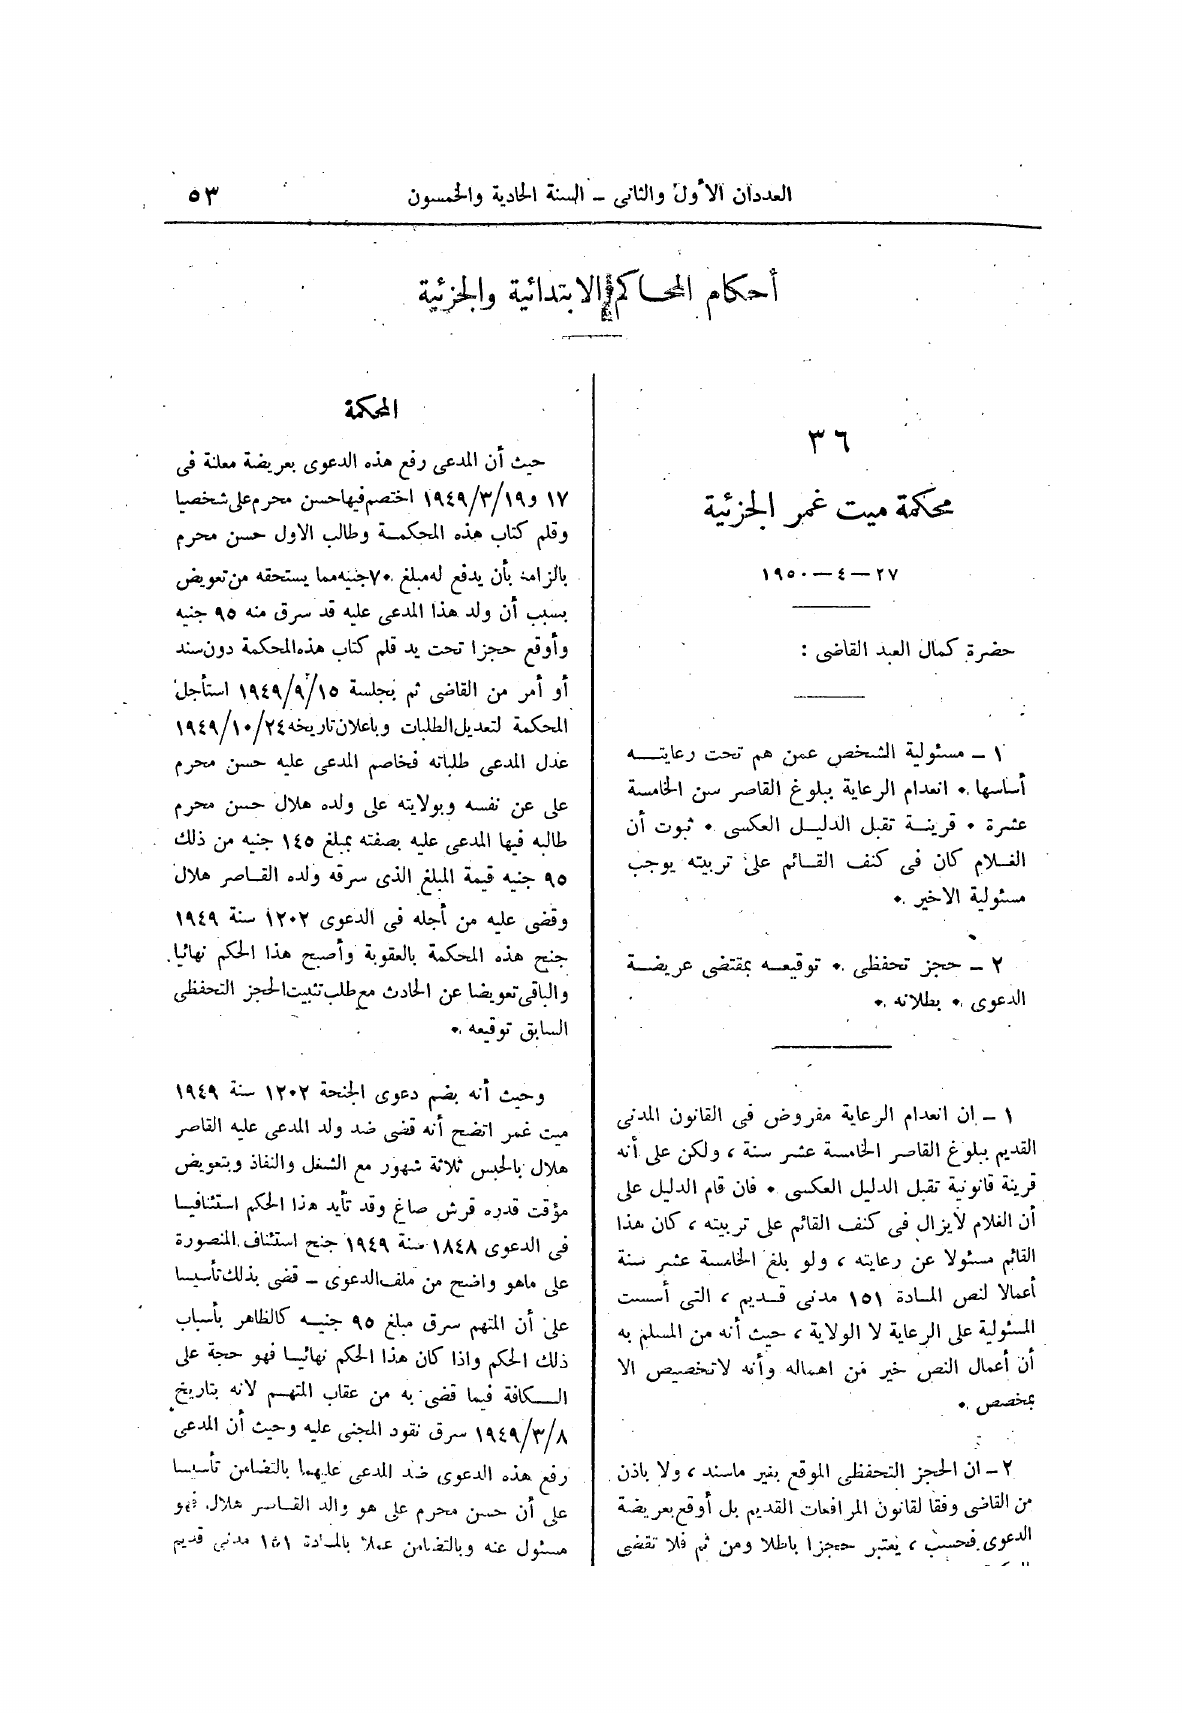 العددان الأول والثانى – السنة الحادية والخمسون ٥٣
أحكام المحاكم الابتدائية والجزئية
٣٦
محكمة ميت غمر الجزئية
٢٧ – ٤ – ١٩٥٠
حضرة كمال العبد القاضى :
١ – مسئولية الشخص عمن هم تحت رعايتــه
أساسها . انعدام الرعاية ببلوغ القاصر سن الخامسة
عشرة . قرينة تقبل الدليل العكسى . ثبوت أن
الغلام كان فى كنف القائم على تربيته يوجب
مسئولية الاخير .
٢ – حجز تحفظى . توقيعه بمقتضى عريضة
الدعوى . بطلانه .
١ – ان انعدام الرعاية مفروض فى القانون المدنى
القديم ببلوغ القاصر الخامسة عشر سنة ، ولكن على أنه
قرينة قانونية تقبل الدليل العكسى . فان قام الدليل على
أن الغلام لايزال فى كنف القائم على تربيته ، كان هذا
القائم مسئولا عن رعايته ، ولو بلغ الخامسة عشر سنة
أعمالا لنص المادة ١٥١ مدنى قديم ، التى أسست
المسئولية على الرعاية لا الولاية ، حيث أنه من المسلم به
أن أعمال النص خير من اهماله وأنه لاتخصيص الا
بمخصص .
٢ – ان الحجز التحفظى الموقع بغير ماسند ، ولا باذن
من القاضى وفقا لقانون المرافعات القديم بل أوقع بعريضة
الدعوى فحسب ، يعتبر حجزا باطلا ومن ثم فلا تقضى
المحكمة
حيث أن المدعى رفع هذه الدعوى بعريضة معلنة فى
١٧ و١٩/٣/١٩٤٩ اختصم فيها حسن محرم على شخصيا
وقلم كتاب هذه المحكمة وطالب الاول حسن محرم
بالزامه بأن يدفع له مبلغ ٧٠ جنيه مما يستحقه من تعويض
بسبب أن ولد هذا المدعى عليه قد سرق منه ٩٥ جنيه
وأوقع حجزا تحت يد قلم كتاب هذه المحكمة دون سند
أو أمر من القاضى ثم بجلسة ١٥/٩/١٩٤٩ استأجل
المحكمة لتعديل الطلبات وباعلان تاريخه ٢٤/١٠/١٩٤٩
عدل المدعى طلباته فخاصم المدعى عليه حسن محرم
على عن نفسه وبولايته على ولده هلال حسن محرم
طالبه فيها المدعى عليه بصفته بمبلغ ١٤٥ جنيه من ذلك
٩٥ جنيه قيمة المبلغ الذى سرقه ولده القاصر هلال
وقضى عليه من أجله فى الدعوى ١٢٠٢ سنة ١٩٤٩
جنح هذه المحكمة بالعقوبة وأصبح هذا الحكم نهائيا
والباقى تعويضا عن الحادث مع طلب تثبيت الحجز التحفظى
السابق توقيعه .
وحيث أنه بضم دعوى الجنحة ١٢٠٢ سنة ١٩٤٩
ميت غمر اتضح أنه قضى ضد ولد المدعى عليه القاصر
هلال بالحبس ثلاثة شهور مع الشغل والنفاذ وبتعويض
مؤقت قدره قرش صاغ وقد تأيد هذا الحكم استئنافيا
فى الدعوى ١٨٤٨ سنة ١٩٤٩ جنح استئناف المنصورة
على ماهو واضح من ملف الدعوى – قضى بذلك تأسيسا
على أن المتهم سرق مبلغ ٩٥ جنيه كالظاهر بأسباب
ذلك الحكم واذا كان هذا الحكم نهائيا فهو حجة على
الكافة فيما قضى به من عقاب المتهم لانه بتاريخ
٨/٣/١٩٤٩ سرق نقود المجنى عليه وحيث أن المدعى
رفع هذه الدعوى ضد المدعى عليهما بالتضامن تأسيسا
على أن حسن محرم على هو والد القاصر هلال فهو
مسئول عنه وبالتضامن عملا بالمادة ١٥١ مدنى قديم